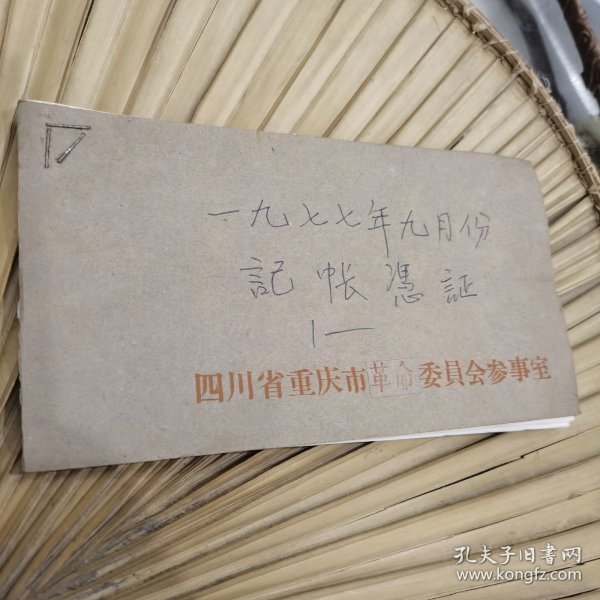 一九七七年九月份
記帐憑証
1—
四川省重庆市革命委員会参事室
孔夫子旧书网
www.kongfz.com